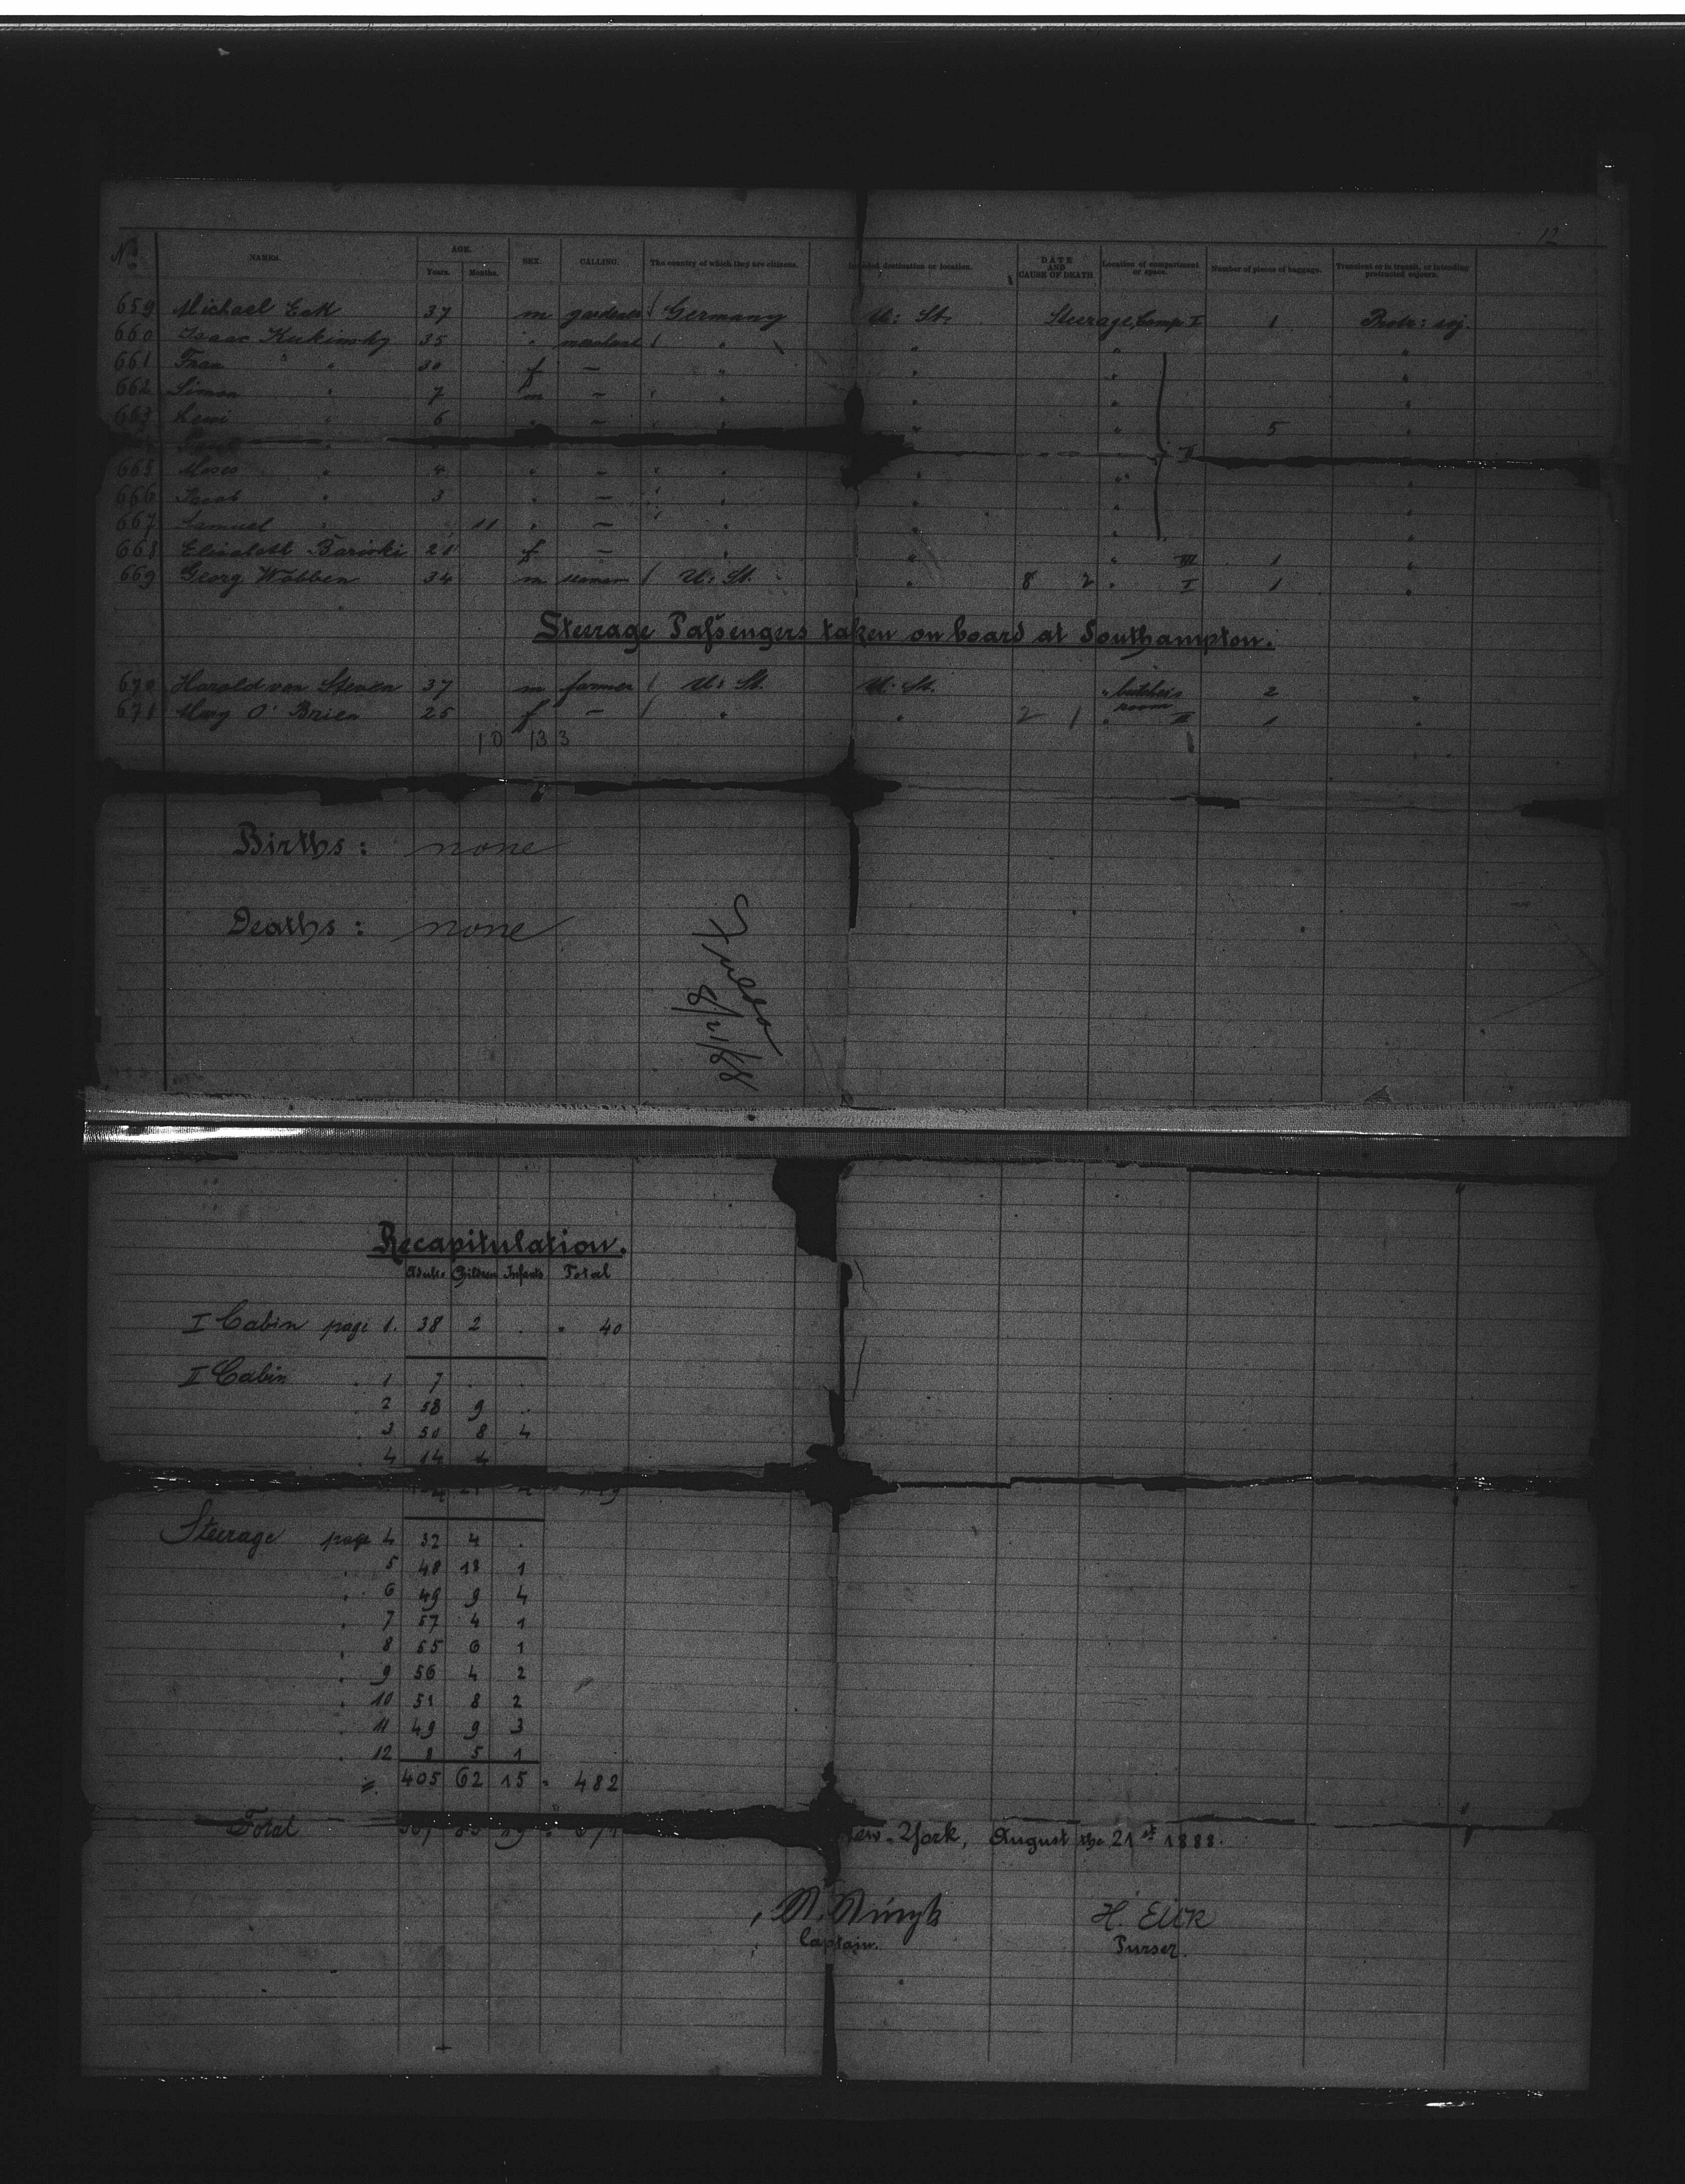 12
No. NAMES. AGE. Years. Months. SEX. CALLING. The country of which they are citizens. Intended destination or location. DATE AND CAUSE OF DEATH Location of compartment or space. Number of pieces of baggage. Transient or in transit, or intending protracted sojourn.
659 Michael Eck 37 m gardener Germany U: St. Steerage, Comp I 1 Protr: soj.
660 Isaac Kukinsky 35 " merchant " " " "
661 Fran " " 30 f — " " " "
662 Simon " 7 m — " " " "
663 Lewi " 6 " — " " " 5 "
II
665 Moses " 4 " — " " " "
666 Jacob " 3 " — " " " "
667 Samuel " 11 " — " " " "
668 Elisabeth Bariski 21 f — " " " III 1 "
669 Georg Wöbben 34 m seaman U: St. " 8 2 " I 1 "
Steerage Passengers taken on board at Southampton.
670 Harold van Steven 37 m farmer U: St. U: St. " butcher's room 2 "
671 Mary O'Brien 25 f — " " 2 1 " II 1 "
10 13 3
Births: none
Deaths: none
Fulda
8/21/88
Recapitulation.
Adults Children Infants Total
I Cabin page 1. 38 2 . " 40
II Cabin " 1 7 . .
" 2 58 9 ..
" 3 50 8 4
" 4 14 4
Steerage page 4 32 4 .
" 5 48 13 1
" 6 49 9 4
" 7 57 4 1
" 8 55 6 1
" 9 56 4 2
" 10 51 8 2
" 11 49 9 3
" 12 8 5 1
= 405 62 15 = 482
Total
New-York, August the 21st 1888.
Captain.
H. Eick
Purser.